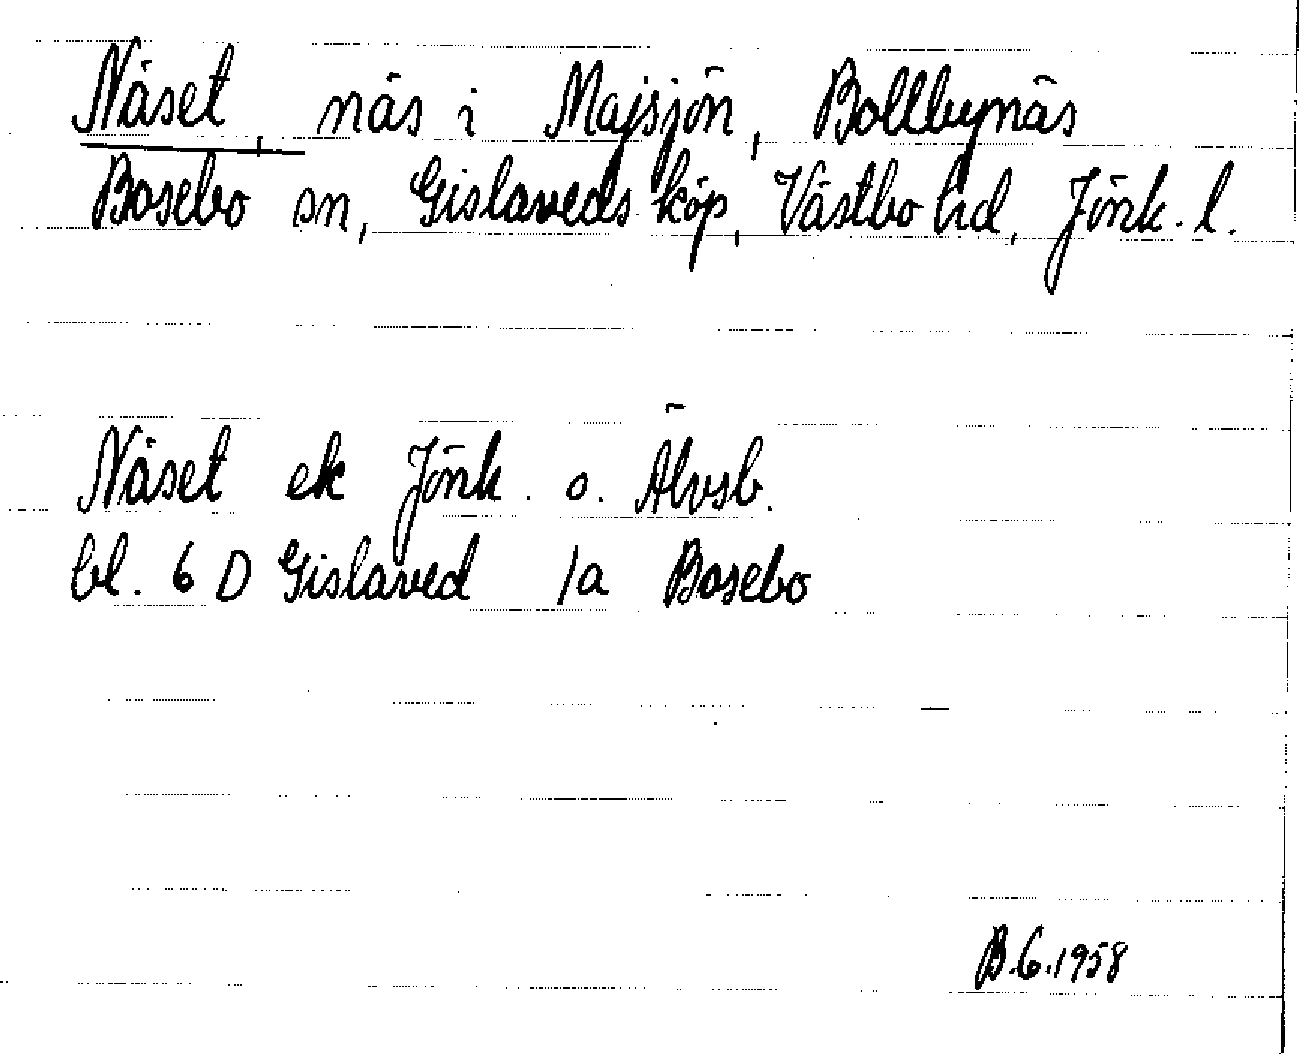 Näset, näs i Majsjön, Bollbynäs
Bosebo sn, Gislaveds köp, Västbo hd, Jönk. l.
Näset ek Jönk. o. Älvsb.
bl. 6 D Gislaved 1a Bosebo
B.G.1958